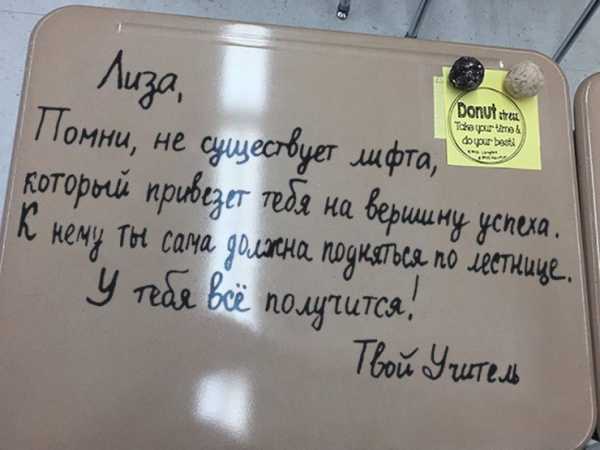 Лиза,
Помни, не существует лифта,
который привезет тебя на вершину успеха.
К нему ты сама должна подняться по лестнице.
У тебя всё получится!
Твой Учитель
Donut stress
Take your time &
do your best!